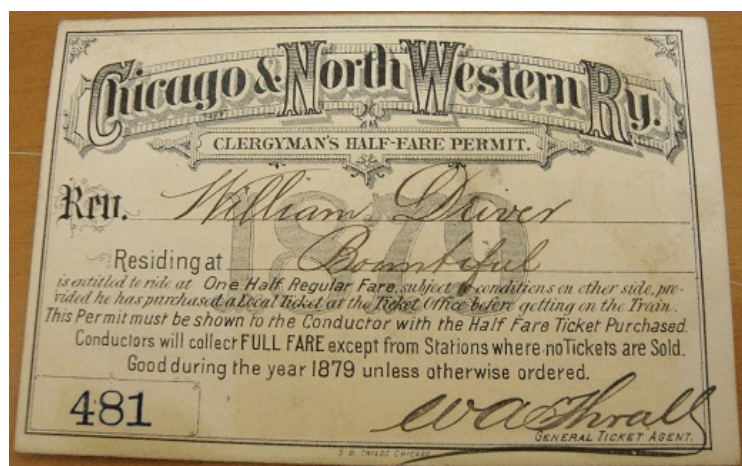 Chicago & North Western Ry.
CLERGYMAN'S HALF-FARE PERMIT.
Rev. William Driver
1879
Residing at Bountiful
is entitled to ride at One Half Regular Fare, subject to conditions on other side, pro-
vided he has purchased a Local Ticket at the Ticket Office before getting on the Train.
This Permit must be shown to the Conductor with the Half Fare Ticket Purchased.
Conductors will collect FULL FARE except from Stations where no Tickets are Sold.
Good during the year 1879 unless otherwise ordered.
481
W A Thrall
GENERAL TICKET AGENT.
S. D. CHILDS CHICAGO